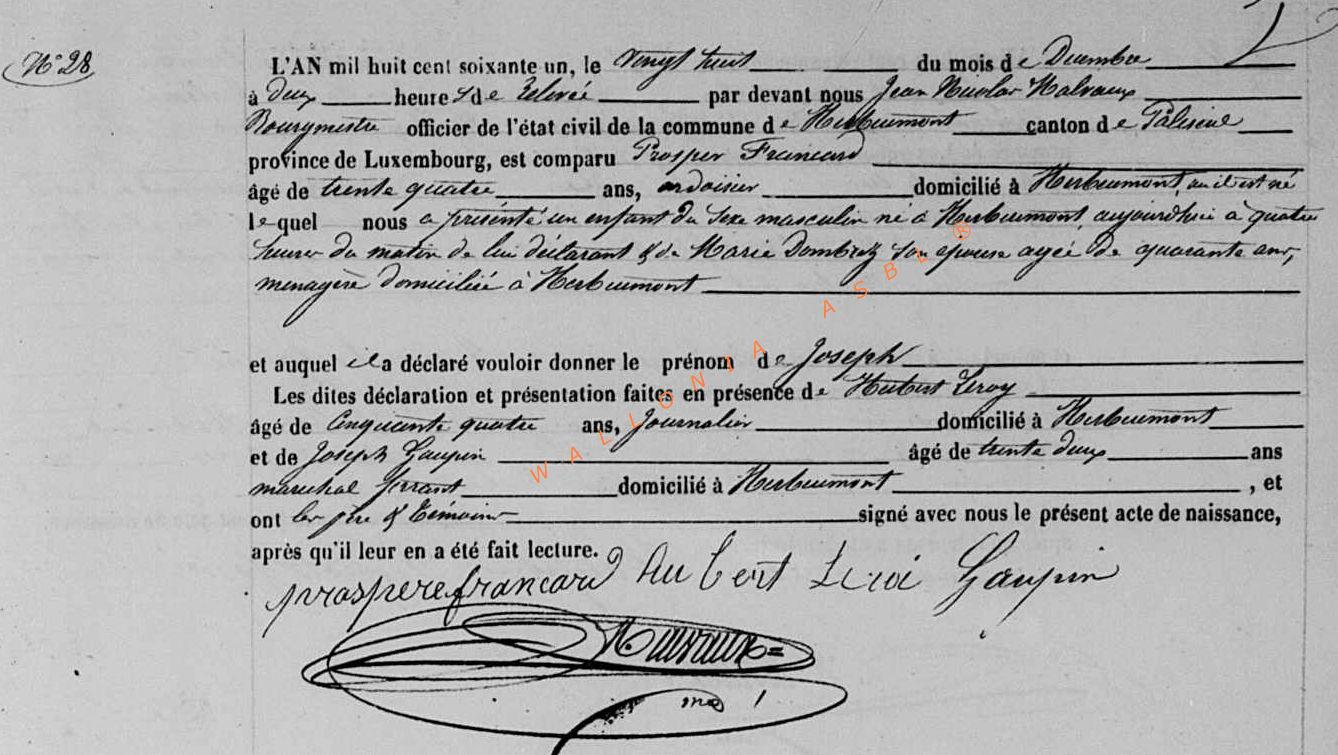 N° 28
L'AN mil huit cent soixante un, le vingt huit du mois de Décembre
à deux heures de relevée par devant nous Jean Nicolas Malvaux
Bourgmestre officier de l'état civil de la commune de Herbeumont canton de Paliseul
province de Luxembourg, est comparu Prosper Francard
âgé de trente quatre ans, ardoisier domicilié à Herbeumont, où il est né
lequel nous a présenté un enfant du sexe masculin né à Herbeumont, aujourd'hui à quatre
heures du matin de lui déclarant & de Marie Dombrez son épouse agée de quarante ans,
menagère domiciliée à Herbeumont
et auquel il a déclaré vouloir donner le prénom de Joseph
Les dites déclaration et présentation faites en présence de Hubert Leroy
âgé de Cinquante quatre ans, Journalier domicilié à Herbeumont
et de Joseph Gaupin âgé de trente deux ans
maréchal ferrant domicilié à Herbeumont, et
ont les père & témoins signé avec nous le présent acte de naissance,
après qu'il leur en a été fait lecture.
prospere francard hu bert Leroi Gaupin
Malvaux
WALLONIA ASBL ®